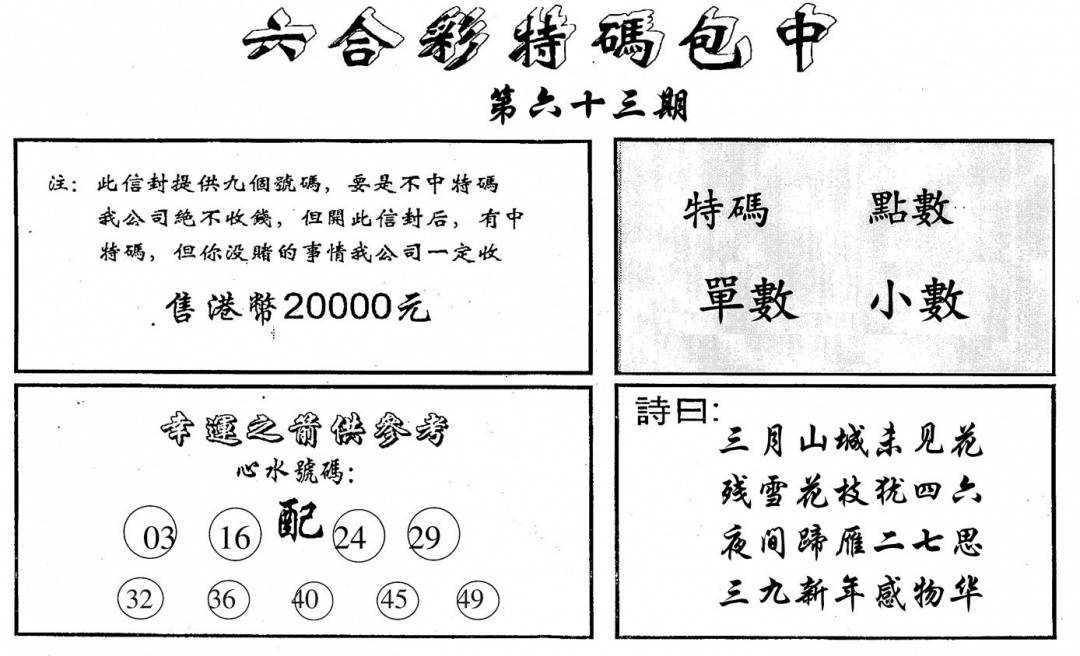 六合彩特碼包中
第六十三期
注：此信封提供九個號碼，要是不中特碼
我公司絕不收錢，但開此信封后，有中
特碼，但你没賭的事情我公司一定收
售港幣20000元
特碼 點數
單數 小數
幸運之箭供參考
心水號碼：
配
03 16 24 29
32 36 40 45 49
詩曰：
三月山城未见花
残雪花枝犹四六
夜间蹄雁二七思
三九新年感物华